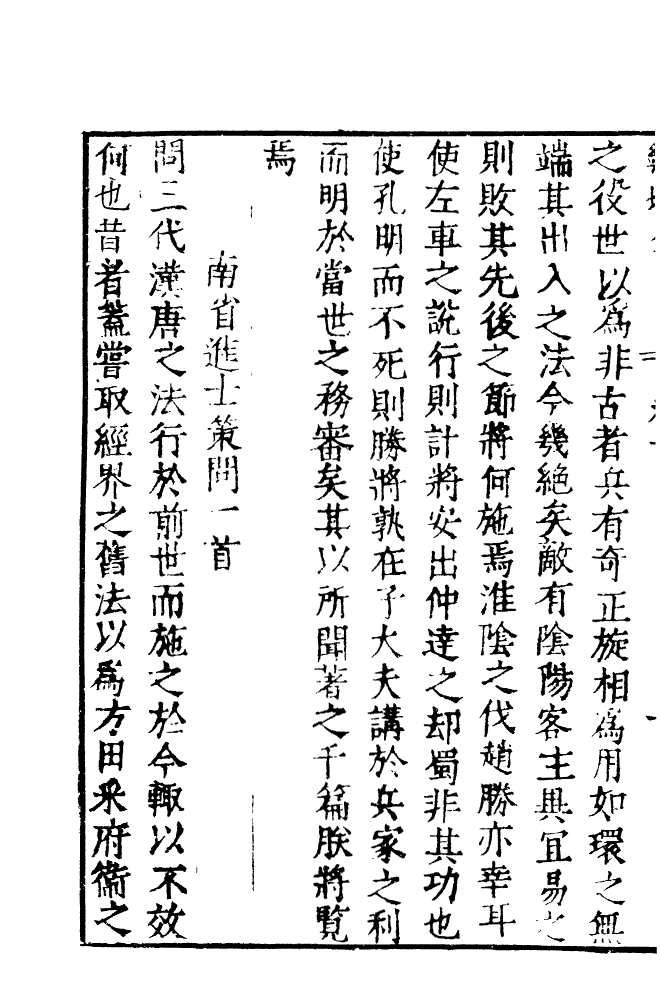 之役世以爲非古者兵有奇正旋相爲用如環之無
端其出入之法今幾絕矣敵有陰陽客主具宜易之
則敗其先後之節將何施焉淮陰之伐趙勝亦幸耳
使左車之說行則計將安出仲達之却蜀非其功也
使孔明而不死則勝將孰在子大夫講於兵家之利
而明於當世之務審矣其以所聞著之千篇朕將覽
焉
南省進士策問一首
問二代漢唐之法行於前世而施之於今輙以不效
何也昔者蓋嘗取經界之舊法以爲方田采府衞之